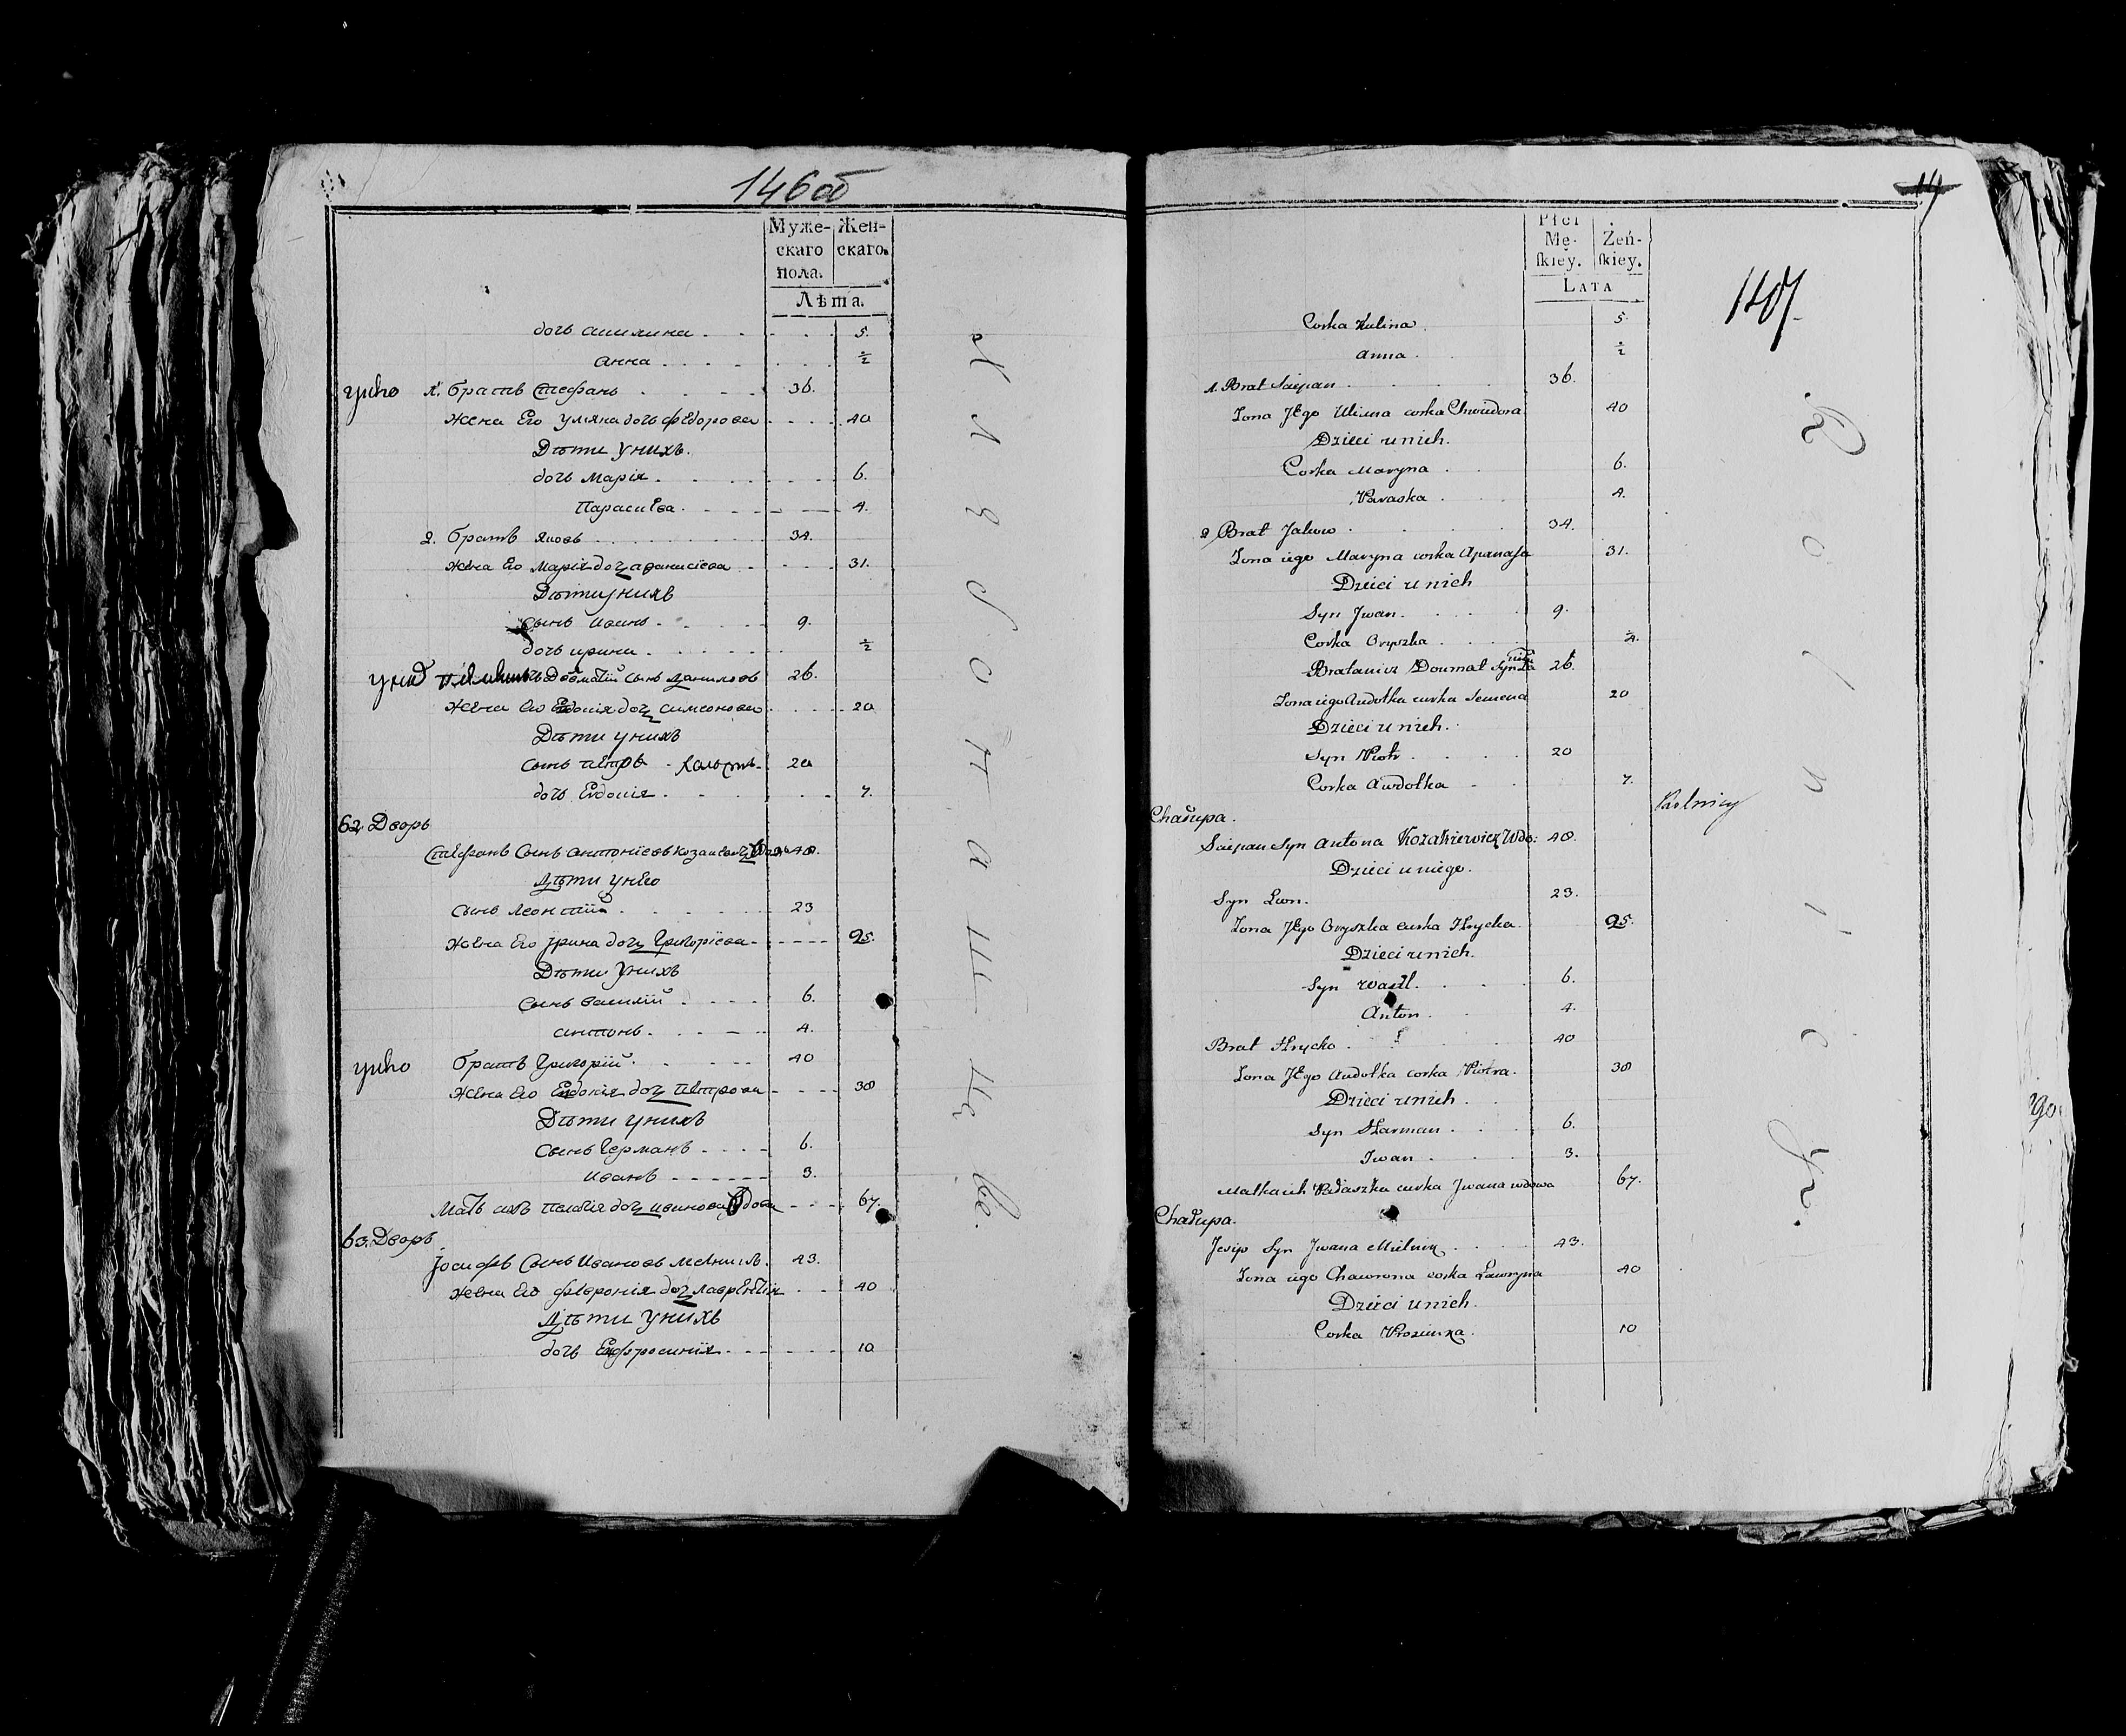 146об
Муже-скаго пола. Жен-скаго.
Лѣта.
дочь 5.
анна ½
уніо 1. братъ Стефанъ 36.
жена Его уліяна дочь федорова 40
Дѣти у нихъ.
дочь Марія 6.
Параскева 4.
2. братъ яковъ 34.
жена Его Марія дочь афанасіева 31.
Дѣти у нихъ
Сынъ иванъ 9.
дочь ирина ½
сынъ даниловъ 26.
жена Его Евдокія дочь симеонова 20
Дѣти у нихъ
сынъ петръ 20
дочь Евдокія 7.
62 Дворъ
Стефанъ Сынъ антоніевъ козакевичь 48.
дѣти у него
сынъ леонтій 23
жена Его ирина дочь григоріева 25.
Дѣти у нихъ
сынъ василій 6.
антонъ 4.
уніо братъ григорій 40
жена Его Евдокія дочь петрова 38
Дѣти у нихъ
сынъ Германъ 6.
иванъ 3.
мать ихъ дочь иванова вдова 67.
63. Дворъ
іосифъ Сынъ ивановъ мелникъ 43.
жена Его февронія дочь лаврентія 40
дѣти у нихъ
дочь Евфросинія 10
147.
Płci Mę-skiey. Żeń-skiey.
LATA
Corka Kulina 5.
Anna ½
1. Brat Sciepan 36.
Zona Jego Uliana corka Chwiedora 40
Dzieci u nich.
Corka Maryna 6.
Paraska 4.
2 Brat Jakow 34.
Zona iego Maryna corka Apanasa 31.
Dzieci u nich
Syn Jwan 9.
Corka Oryszka
Bratanicz Doumat Syn 26.
Zona iego Audotka corka Semena 20
Dzieci u nich.
Syn Piotr 20
Corka Audotka 7.
Chałupa. Rolnicy
Sciepan Syn Antona Kozakiewicz Wdo: 48.
Dzieci u niego.
Syn Lwon. 23.
Zona Jego Oryszka corka Hrycka 25.
Dzieci u nich.
Syn Wasil 6.
Anton 4.
Brat Hrycko 40
Zona Jego Audotka corka Piotra. 38
Dzieci u nich
Syn Harman 6.
Iwan 3.
Matka ich Pałaszka corka Jwana wdowa 67.
Chałupa.
Josip Syn Jwana Mielnik 43.
Zona iego Chawrona corka Ławryna 40
Dzieci u nich.
Corka Prosinka 10